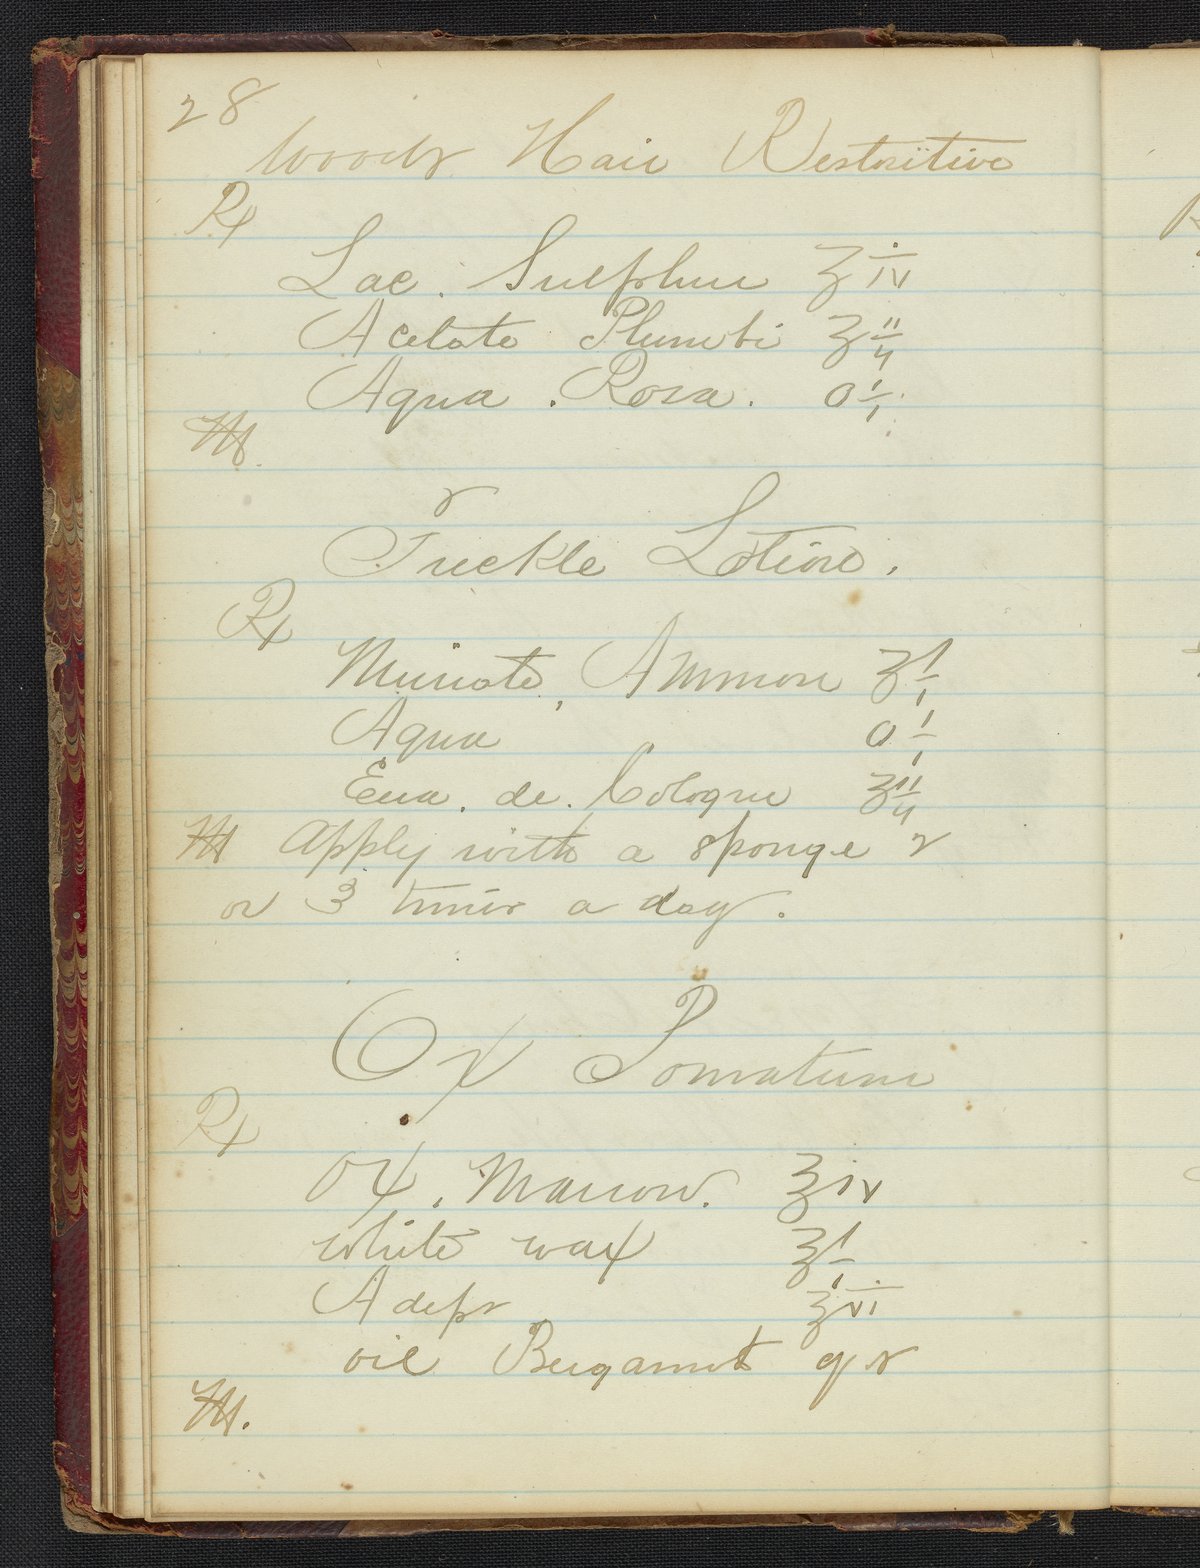 28
Woods Hair Restoritive
Rx
Lac. Sulphur ʒ iv
Acetate Plumbi ʒ ii
Aqua. Rosa. O i
M.
r
Freckle Lotion.
Rx
Muriate, Ammon ʒ i
Aqua O i
Eua. de. Cologne ʒ ii
M apply with a sponge 2
or 3 times a day.
Ox Pomatum
Rx
Ox. Marrow. ℥ iv
white wax ℥ i
Adeps ℥ vi
oil Bergamot qs
M.